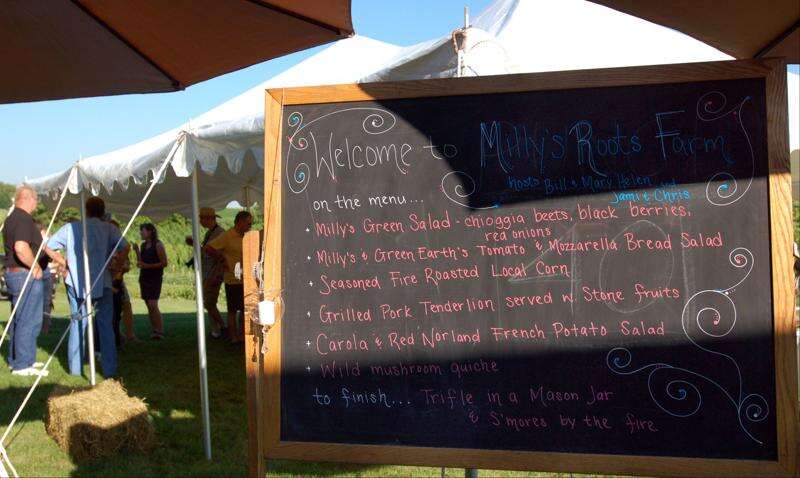 Welcome to Milly's Roots Farm
hosts Bill & Mary Helen
Jami & Chris
on the menu...
+ Milly's Green Salad - chioggia beets, black berries,
red onions
+ Milly's & Green Earth's Tomato & Mozzarella Bread Salad
+ Seasoned Fire Roasted Local Corn
+ Grilled Pork Tenderlion served w Stone fruits
+ Carola & Red Norland French Potato Salad
+ Wild mushroom quiche
to finish... Trifle in a Mason Jar
& S'mores by the fire